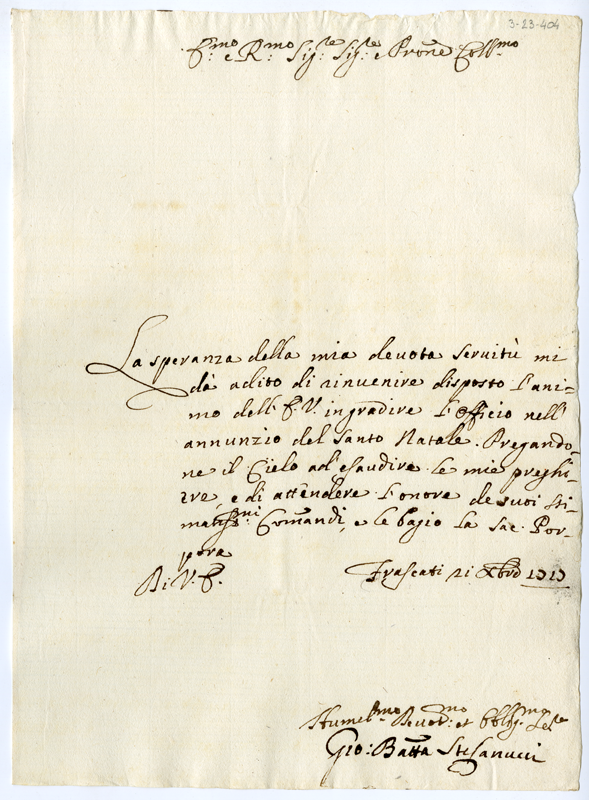 3-23-404
E.mo e R.mo Sig.re Sig.re e Prone Coll.mo
La speranza della mia devota servitù mi
dà adito di rinvenire disposto l'ani-
mo dell' E.V. in gradire l'Officio nell'
annunzio del Santo Natale. Pregando-
ne il Cielo ad' esaudire le mie preghi-
ere, e di attendere l'onore de suoi sti-
matiss.mi Comandi, e le bagio la Sac. Por-
pora
Di V. E.
Frascati 21 Xbre
Humil.mo Devot.mo et Obblig.mo Se.re
Gio: Batta Stefanucci